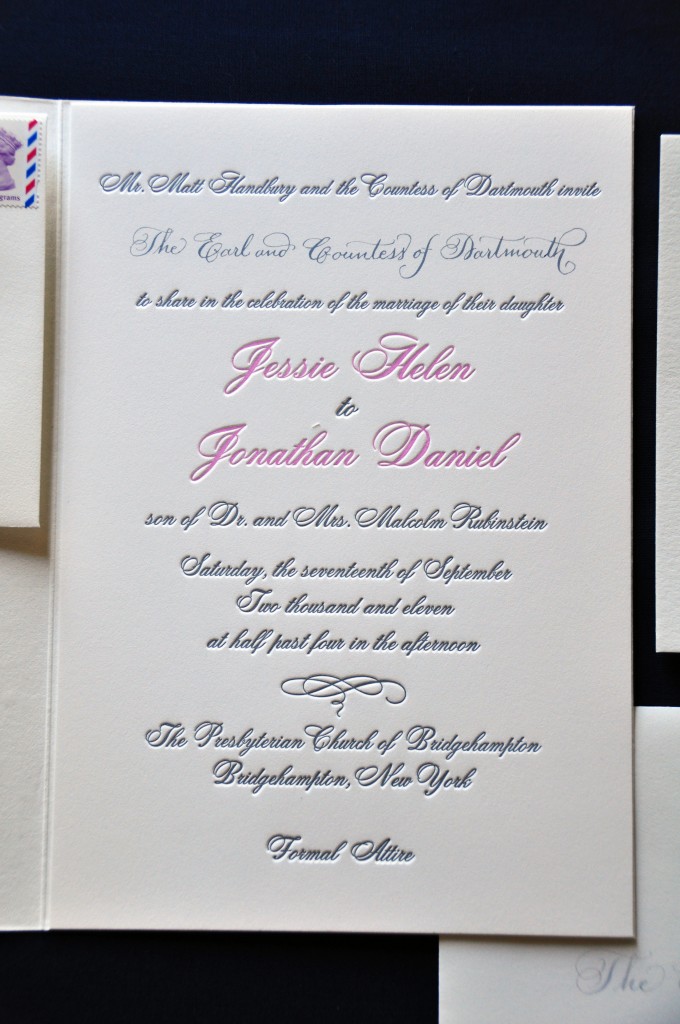 grams
Mr. Matt Handbury and the Countess of Dartmouth invite
The Earl and Countess of Dartmouth
to share in the celebration of the marriage of their daughter
Jessie Helen
to
Jonathan Daniel
son of Dr. and Mrs. Malcolm Rubinstein
Saturday, the seventeenth of September
Two thousand and eleven
at half past four in the afternoon
The Presbyterian Church of Bridgehampton
Bridgehampton, New York
Formal Attire
The